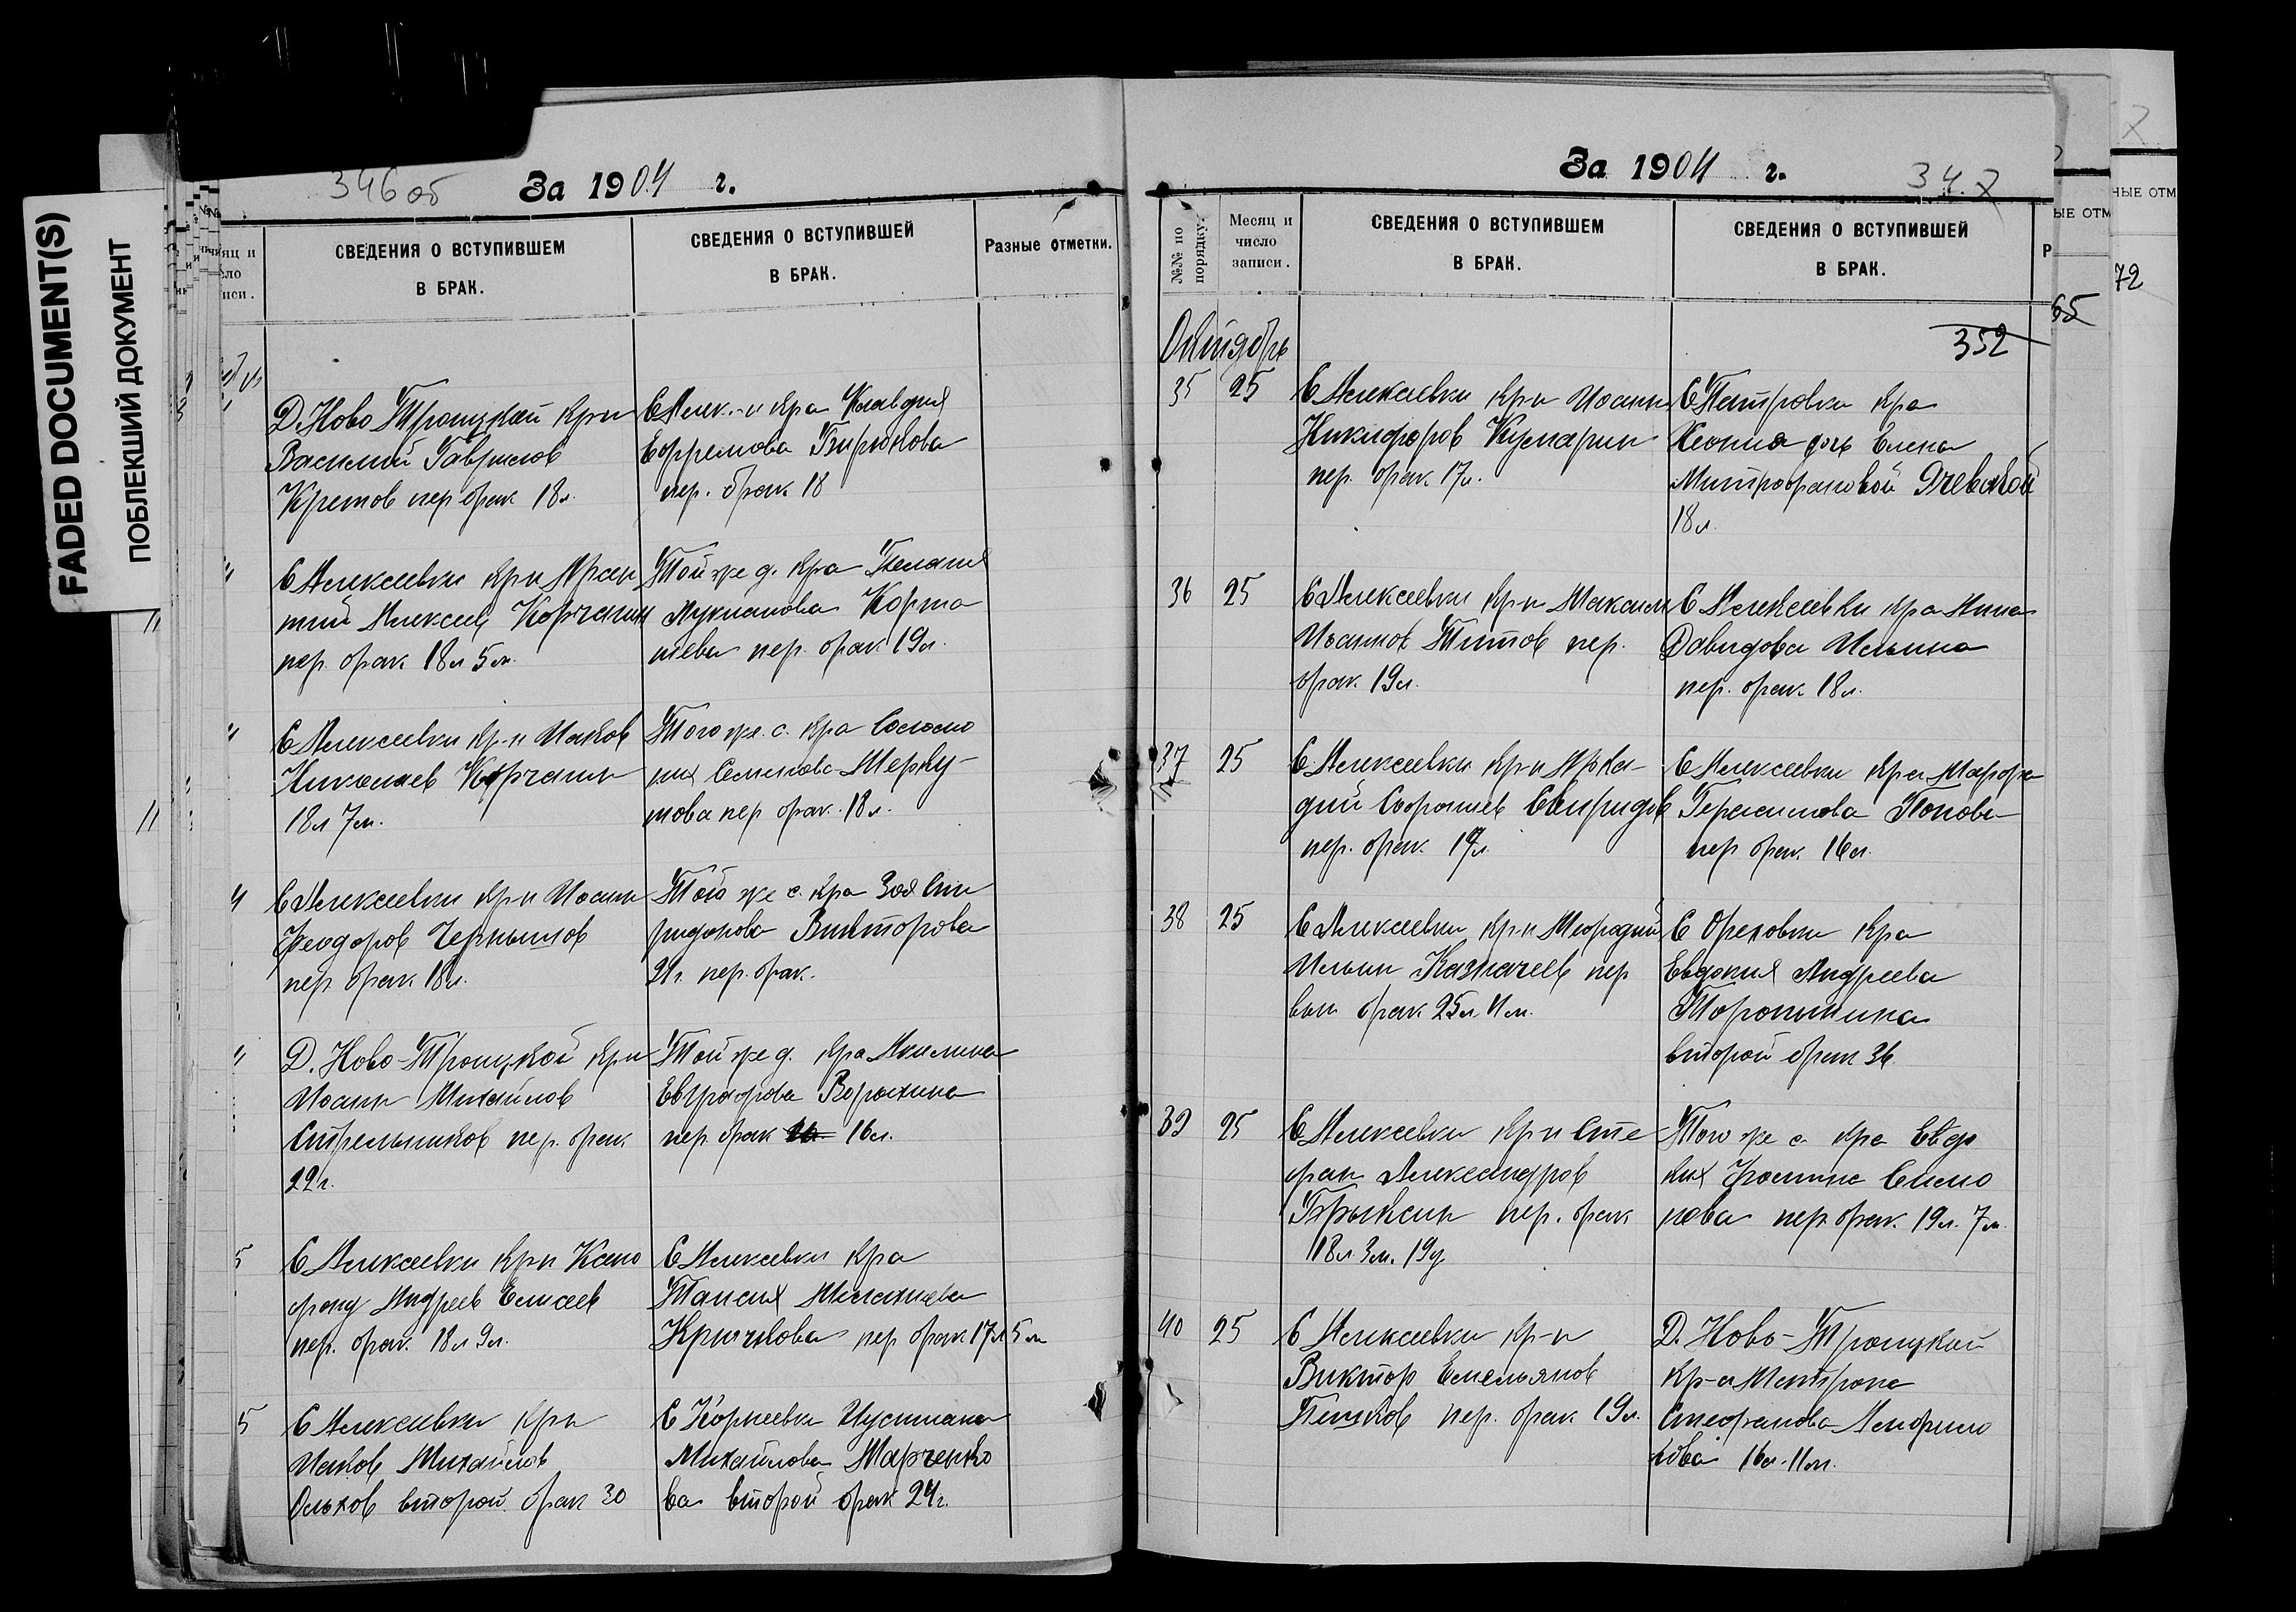 FADED DOCUMENT(S)
ПОБЛЕКШИЙ ДОКУМЕНТ
346об
За 1904 г.
СВЕДЕНИЯ О ВСТУПИВШЕМ
В БРАК.
СВЕДЕНИЯ О ВСТУПИВШЕЙ
В БРАК.
Разные отметки.
Д. Ново Троицкой кр-н
Василий Гаврилов
Кретов пер брак 18 л.
С Алек.-и кра Клавдия
Ефремова Бирюкова
пер. брак 18
С Алексеевки кр-н Арсен
тий Алексеев Корчагин
пер. брак 18 л 5 м.
Той же д. кра Пелагия
Лукианова Корта
шева пер. брак 19 л.
С Алексеевки кр-н Иаков
Николаев Корчагин
18 л 7 м.
Того же. с. кра Соломо
ния Семенова Мерку-
това пер брак. 18 л.
С Алексеевки кр-н Иоанн
Феодоров Чернышов
пер. брак 18 л.
Той же с. кра Зоя Спи
ридонова Викторова
21 г. пер. брак.
Д. Ново-Троицкой кр-н
Иоанн Михайлов
Стрельников пер. брак
22 г.
Той же д. кра Акилина
Евграфова Ворыхина
пер. брак 16 л.
5
С Алексеевки кр-н Ксено
фонт Андреев Елисеев
пер. брак. 18 л 9 м.
С Алексеевки кра
Таисия
Крючкова пер брак 17 л 5 м
5
С Алексеевки кр-н
Иаков Михайлов
Ольхов второй брак 30
С Корнеевки Иустиана
Михайлова Марченко
ва второй брак 24 г.
За 1904 г.
347
№№ по порядку.
Месяц и
число
записи.
СВЕДЕНИЯ О ВСТУПИВШЕМ
В БРАК.
СВЕДЕНИЯ О ВСТУПИВШЕЙ
В БРАК.
352
Октябрь
35 25
С Алексеевки кр-н Иоанн
Никифоров Кумарин
пер. брак. 17 л.
С Петровки кра
Хеония дочь Елена
Митрофановой
18 л.
36 25
С Алексеевки кр-н Максим
Иоаннов Титов пер.
брак. 19 л.
С Алексеевки кра Анна
Давидова Ильина
пер. брак. 18 л.
37 25
С Алексеевки кр-н Арка-
дий Софониев Свиридов
пер. брак. 19 л.
С Алексеевки кра Марфа
Герасимова Попова
пер брак. 16 л.
38 25
С Алексеевки кр-н Меродий
Ильин Казначеев пер
вым брак 25 л. 11 м.
С Ореховки кра
Евдокия Андреева
Торопынина
второй брак 36
39 25
С Алексеевки кр-н Сте
фан Александров
Брыксин пер. брак
18 л. 3 м. 19 д
Того же с кра Евдо
кия Фомина Симо
нова пер. брак. 19 л. 7 м.
40 25
С Алексеевки кр-н
Виктор Емельянов
Пешков пер. брак 19 л.
Д. Ново-Троицкой
кр-а Матрона
Стефанова
16 л. 11 м.
65
72